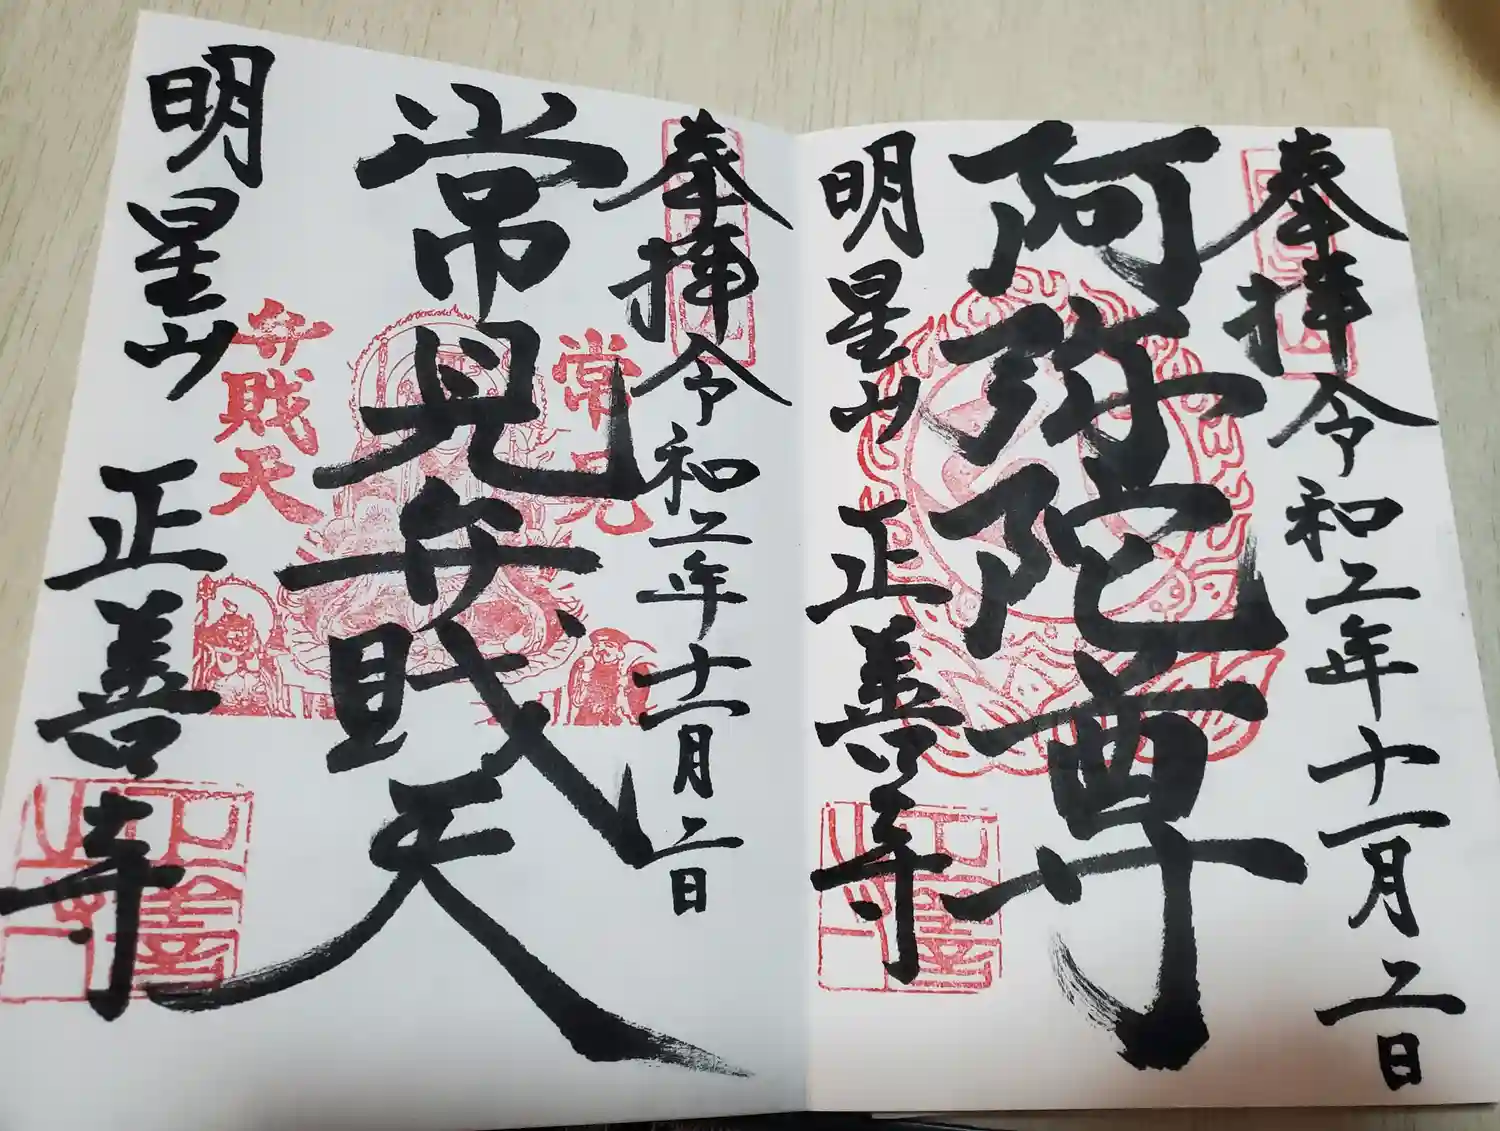 奉拝 令和二年十一月二日
阿弥陀尊
明星山 正善寺
奉拝 令和二年十一月二日
常見弁賎天
明星山 正善寺
常見
弁賎天